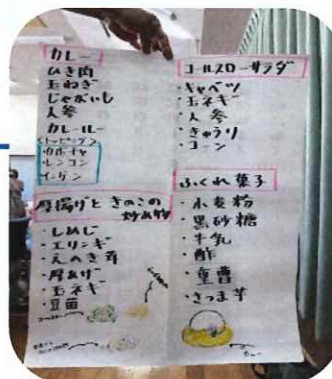 カレー
ひき肉
玉ねぎ
じゃがいも
人参
カレールー
<トッピング>
カボチャ
レンコン
インゲン
厚揚げときのこの
炒め物
・しめじ
・エリンギ
・えのき茸
・厚あげ
・玉ネギ
・豆苗
コールスローサラダ
・キャベツ
・玉ネギ
・人参
・きゅうり
・コーン
ふくれ菓子
・小麦粉
・黒砂糖
・牛乳
・酢
・重曹
・さつま芋